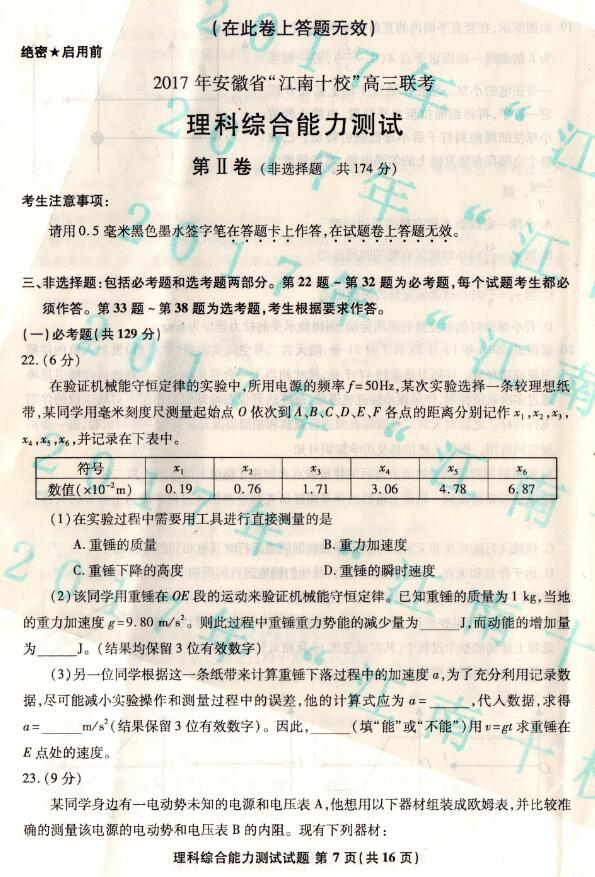 (在此卷上答题无效)
绝密★启用前
2017 年安徽省“江南十校”高三联考
理科综合能力测试
第Ⅱ卷 (非选择题 共 174 分)
考生注意事项:
请用 0.5 毫米黑色墨水签字笔在答题卡上作答,在试题卷上答题无效。
三、非选择题:包括必考题和选考题两部分。第 22 题~第 32 题为必考题,每个试题考生都必
须作答。第 33 题~第 38 题为选考题,考生根据要求作答。
(一)必考题(共 129 分)
22.(6 分)
在验证机械能守恒定律的实验中,所用电源的频率 f=50Hz,某次实验选择一条较理想纸
带,某同学用毫米刻度尺测量起始点 O 依次到 A、B、C、D、E、F 各点的距离分别记作 x₁,x₂,x₃,
x₄,x₅,x₆,并记录在下表中。
符号 x₁ x₂ x₃ x₄ x₅ x₆
数值(×10⁻²m) 0.19 0.76 1.71 3.06 4.78 6.87
(1)在实验过程中需要用工具进行直接测量的是
A. 重锤的质量 B. 重力加速度
C. 重锤下降的高度 D. 重锤的瞬时速度
(2)该同学用重锤在 OE 段的运动来验证机械能守恒定律。已知重锤的质量为 1 kg,当地
的重力加速度 g=9.80 m/s²。则此过程中重锤重力势能的减少量为_____J,而动能的增加量
为_____J。(结果均保留 3 位有效数字)
(3)另一位同学根据这一条纸带来计算重锤下落过程中的加速度 a,为了充分利用记录数
据,尽可能减小实验操作和测量过程中的误差,他的计算式应为 a=_____,代入数据,求得
a=_____m/s²(结果保留 3 位有效数字)。因此,_____(填“能”或“不能”)用 v=gt 求重锤在
E 点处的速度。
23.(9 分)
某同学身边有一电动势未知的电源和电压表 A,他想用以下器材组装成欧姆表,并比较准
确的测量该电源的电动势和电压表 B 的内阻。现有下列器材:
理科综合能力测试试题 第 7 页(共 16 页)
2017年“江南十校
2017年“江南十校
2017年“江南十校
2017年“江南十校